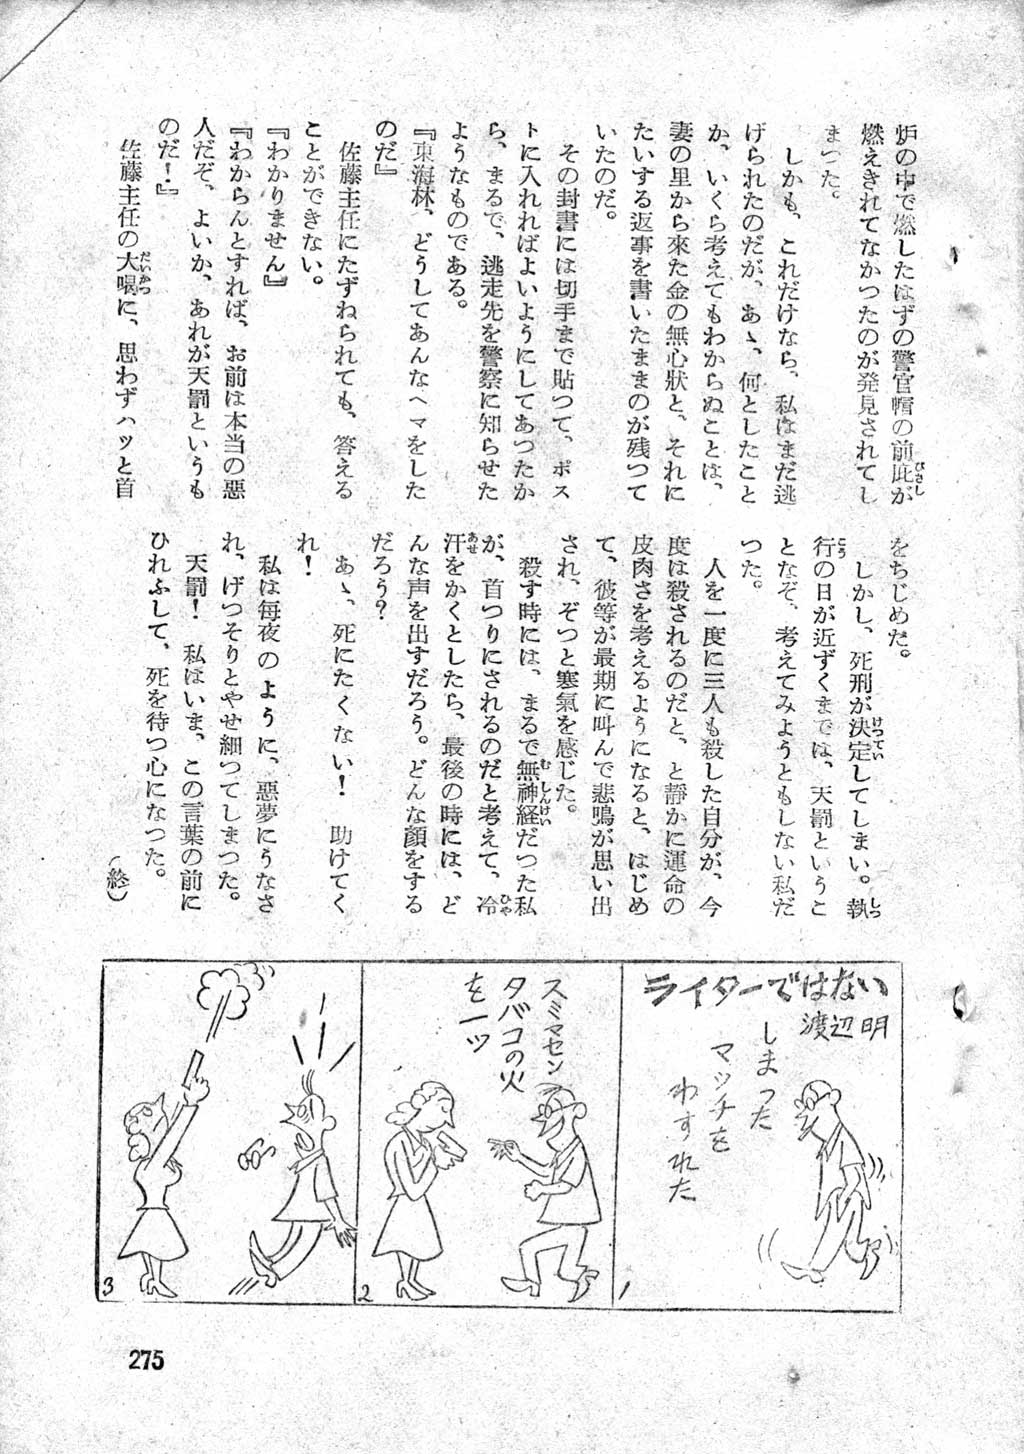 炉の中で燃したはずの警官帽の前庇が
燃えきれてなかつたのが発見されてし
まつた。
しかも、これだけなら、私はまだ逃
げられたのだが、あゝ、何としたこと
か、いくら考えてもわからぬことは、
妻の里から來た金の無心狀と、それに
たいする返事を書いたままのが残つて
いたのだ。
その封書には切手まで貼つて、ポス
トに入れればよいようにしてあつたか
ら、まるで、逃走先を警察に知らせた
ようなものである。
『東海林、どうしてあんなヘマをした
のだ』
佐藤主任にたずねられても、答える
ことができない。
『わかりません』
『わからんとすれば、お前は本当の悪
人だぞ、よいか、あれが天罰というも
のだ！』
佐藤主任の大喝に、思わずハッと首
をちじめた。
しかし、死刑が決定してしまい。執
行の日が近ずくまでは、天罰というこ
となぞ、考えてみようともしない私だ
つた。
人を一度に三人も殺した自分が、今
度は殺されるのだと、と靜かに運命の
皮肉さを考えるようになると、はじめ
て、彼等が最期に叫んで悲鳴が思い出
され、ぞつと寒氣を感じた。
殺す時には、まるで無神経だつた私
が、首つりにされるのだと考えて、冷
汗をかくとしたら、最後の時には、ど
んな声を出すだろう。どんな顔をする
だろう？
あゝ、死にたくない！　助けてく
れ！
私は每夜のように、惡夢にうなさ
れ、げつそりとやせ細つてしまつた。
天罰！　私はいま、この言葉の前に
ひれふして、死を待つ心になつた。
（終）
ライターではない
渡辺明
しまった
マッチを
わすれた
1
スミマセン
タバコの火
を一ツ
2
3
275